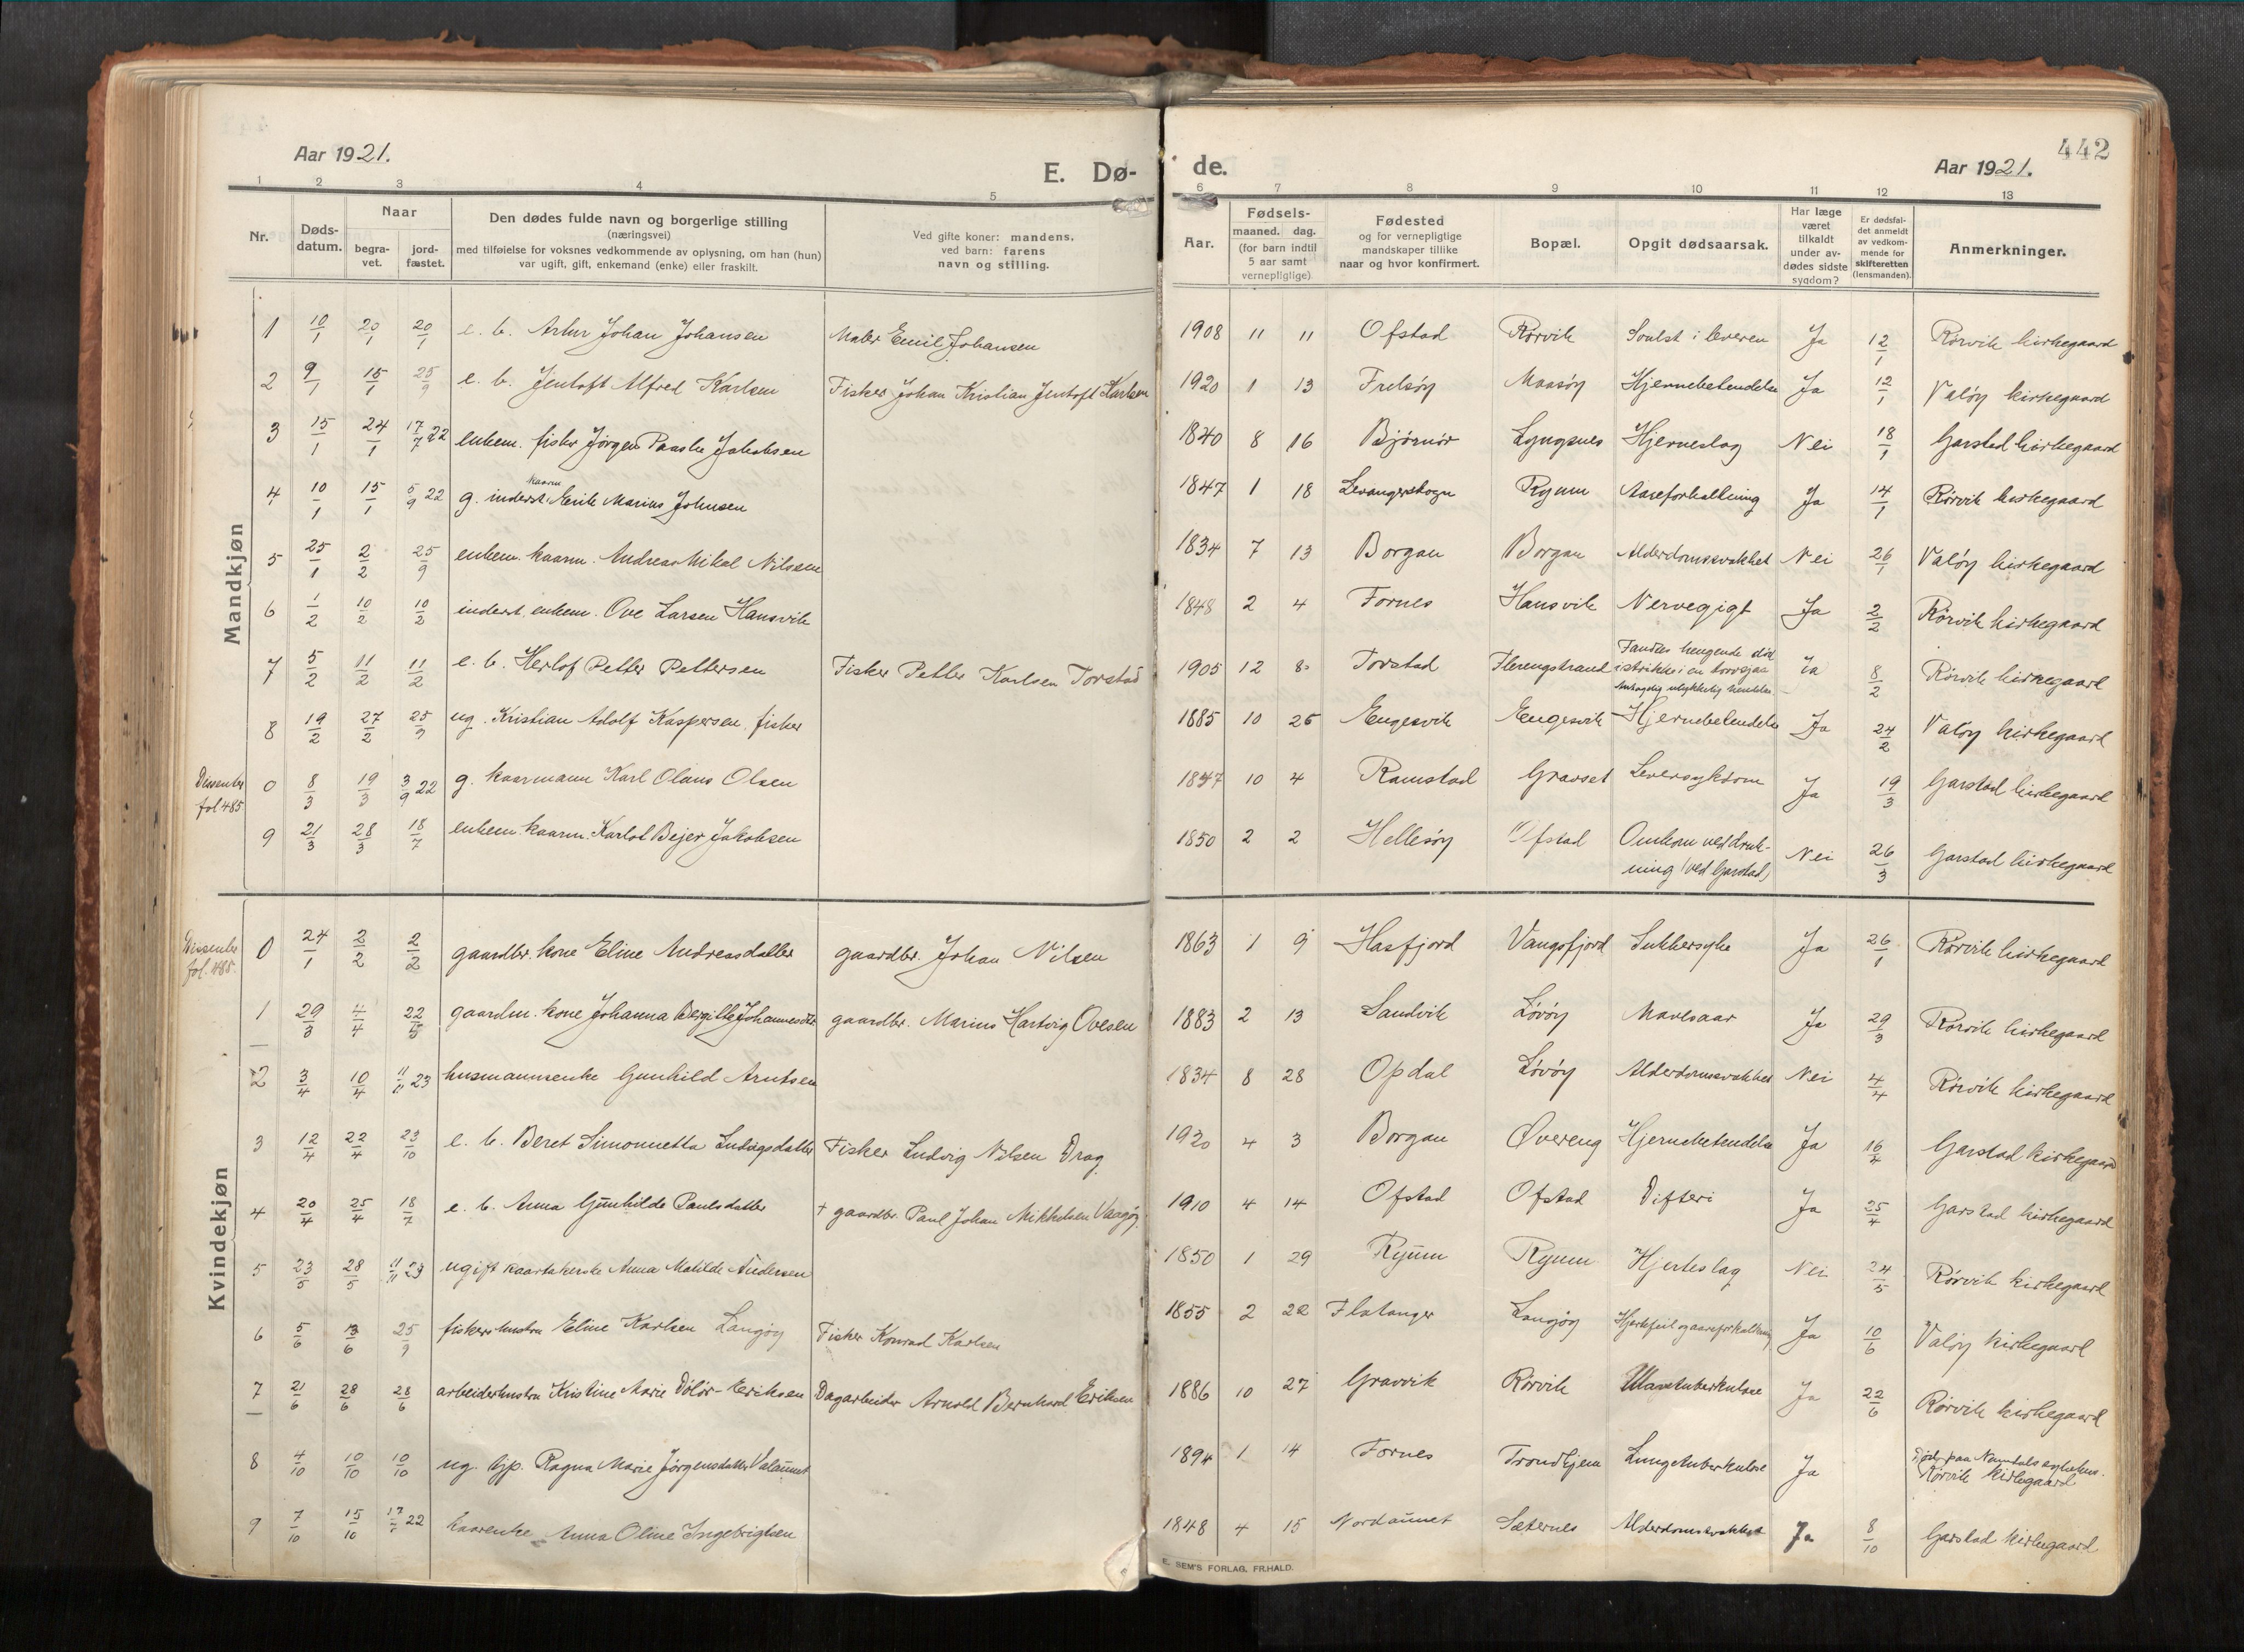 442
Aar 1921.
E. Dø-
de.
Aar 1921.
1 2 3 4 5
6 7 8 9 10 11 12 13
Nr.
Døds-
datum.
Naar
begra-
vet.
jord-
fæstet.
Den dødes fulde navn og borgerlige stilling
(næringsvei)
med tilføielse for voksnes vedkommende av oplysning, om han (hun)
var ugift, gift, enkemand (enke) eller fraskilt.
Ved gifte koner: mandens,
ved barn: farens
navn og stilling.
Aar.
Fødsels-
maaned. dag.
(for barn indtil
5 aar samt
vernepligtige)
Fødested
og for vernepligtige
mandskaper tillike
naar og hvor konfirmert.
Bopæl.
Opgit dødsaarsak.
Har læge
været
tilkaldt
under av-
dødes sidste
sygdom?
Er dødsfal-
det anmeldt
av vedkom-
mende for
skifteretten
(lensmanden).
Anmerkninger.
Mandkjøn
1 10/1 20/1 20/1 e. b. Artur Johan Johansen Maler Emil Johansen 1908 11 11 Ofstad Rørvik Svulst i leveren Ja 12/1 Rørvik kirkegaard
2 9/1 15/1 25/9 e. b. Jentoft Alfred Karlsen Fisker Johan Kristian Jentoft Karlsen 1920 1 13 Frelsøy Maasøy Hjernebetendelse Ja 12/1 Valøy kirkegaard
3 15/1 24/1 17/7 22 enkem. fisker Jørgen Paaske Jakobsen 1840 8 16 Bjørnør Lyngsnes Hjerneslag Nei 18/1 Garstad kirkegaard
4 10/1 15/1 5/9 22 g. inderst. kaarm Erik Marius Johnsen 1847 1 18 Levangerskogn Ryum Aareforkalkning Ja 14/1 Rørvik kirkegaard
5 25/1 2/2 25/9 enkem. kaarm. Andreas Mikal Nilsen 1834 7 13 Borgan Borgan Alderdomssvakhet Nei 26/1 Valøy kirkegaard
6 1/2 10/2 10/2 inderst. enkem. Ove Larsen Hansvik 1848 2 4 Fornes Hansvik Nervegigt Ja 2/2 Rørvik kirkegaard
7 5/2 11/2 11/2 e. b. Herlof Petter Pettersen Fisker Petter Karlsen Torstad 1905 12 8 Torstad Flerengstrand Fandtes hengende død
i strikke i en torvsjaa Ja 8/2 Rørvik kirkegaard
8 19/2 27/2 25/9 ug. Kristian Adolf Kaspersen, fisker 1885 10 25 Engesvik Engesvik Hjernebetendelse Ja 24/2 Valøy kirkegaard
Dissenter
fol. 485
0 8/3 19/3 3/9 22 g. kaarmann Karl Olaus Olsen 1847 10 4 Ramstad Gravset Leversykdom Ja 19/3 Garstad kirkegaard
9 21/3 28/3 18/7 enkem. kaarm. Karlot Bejer Jakobsen 1850 2 2 Hellesøy Ofstad Omkom ved druk-
ning (ved Garstad) Nei 26/3 Garstad kirkegaard
Kvindekjøn
Dissenter
fol. 485.
0 24/1 2/2 2/2 gaardbr. kone Eline Andreasdatter gaardbr. Johan Nilsen 1863 1 9 Hasfjord Vangsfjord Sukkersyke Ja 26/1 Rørvik kirkegaard
1 29/3 4/4 gaardm. kone Johanna Bergitte Johannesdtr gaardbr. Marius Hartvig Ovesen 1883 2 13 Sandvik Løvøy Mavesaar Ja 29/3 Rørvik kirkegaard
2 3/4 10/4 11/11 23 husmannsenke Gunhild Arntsen 1834 8 28 Opdal Løvøy Alderdomssvakhet Nei 4/4 Rørvik kirkegaard
3 12/4 22/4 23/10 e. b. Beret Simonnetta Ludvigsdatter Fisker Ludvig Nilsen Drag 1920 4 3 Borgan Øvereng Hjernebetendelse Ja 16/4 Garstad kirkegaard
4 20/4 25/4 18/7 e. b. Anna Gunhilde Paulsdatter + gaardbr. Paul Johan Mikkelsen Vangøy. 1910 4 14 Ofstad Ofstad Difteri Ja 25/4 Garstad kirkegaard
5 23/5 28/5 11/11 23 ugift kaartakerske Anna Matilde Andersen 1850 1 29 Ryum Ryum Hjerteslag Nei 24/5 Rørvik kirkegaard
6 5/6 13/6 25/9 fiskershustru Eline Karlsen Langøy Fisker Konrad Karlsen 1855 2 22 Flatanger Langøy Hjertefeil og aareforkalkning Ja 10/6 Valøy kirkegaard
7 21/6 28/6 28/6 arbeiderhustru Kristine Marie Dolør-Eriksen Dagarbeider Arnold Bernhard Eriksen 1886 10 27 Gravvik Rørvik Mavetuberkulose Ja 22/6 Rørvik kirkegaard
8 4/10 10/10 10/10 ug. tjp. Ragna Marie Jørgensdatter Valaunet 1894 1 14 Fornes Trondhjem Lungetuberkulose Ja Død paa Namdals sykehus.
Rørvik kirkegaard
9 7/10 15/10 22 kaarenke Anna Oline Ingebrigtsen 1848 4 15 Nordaunet Sæternes Alderdomssvakhet Ja 8/10 Garstad kirkegaard
E. SEM'S FORLAG, FR.HALD.